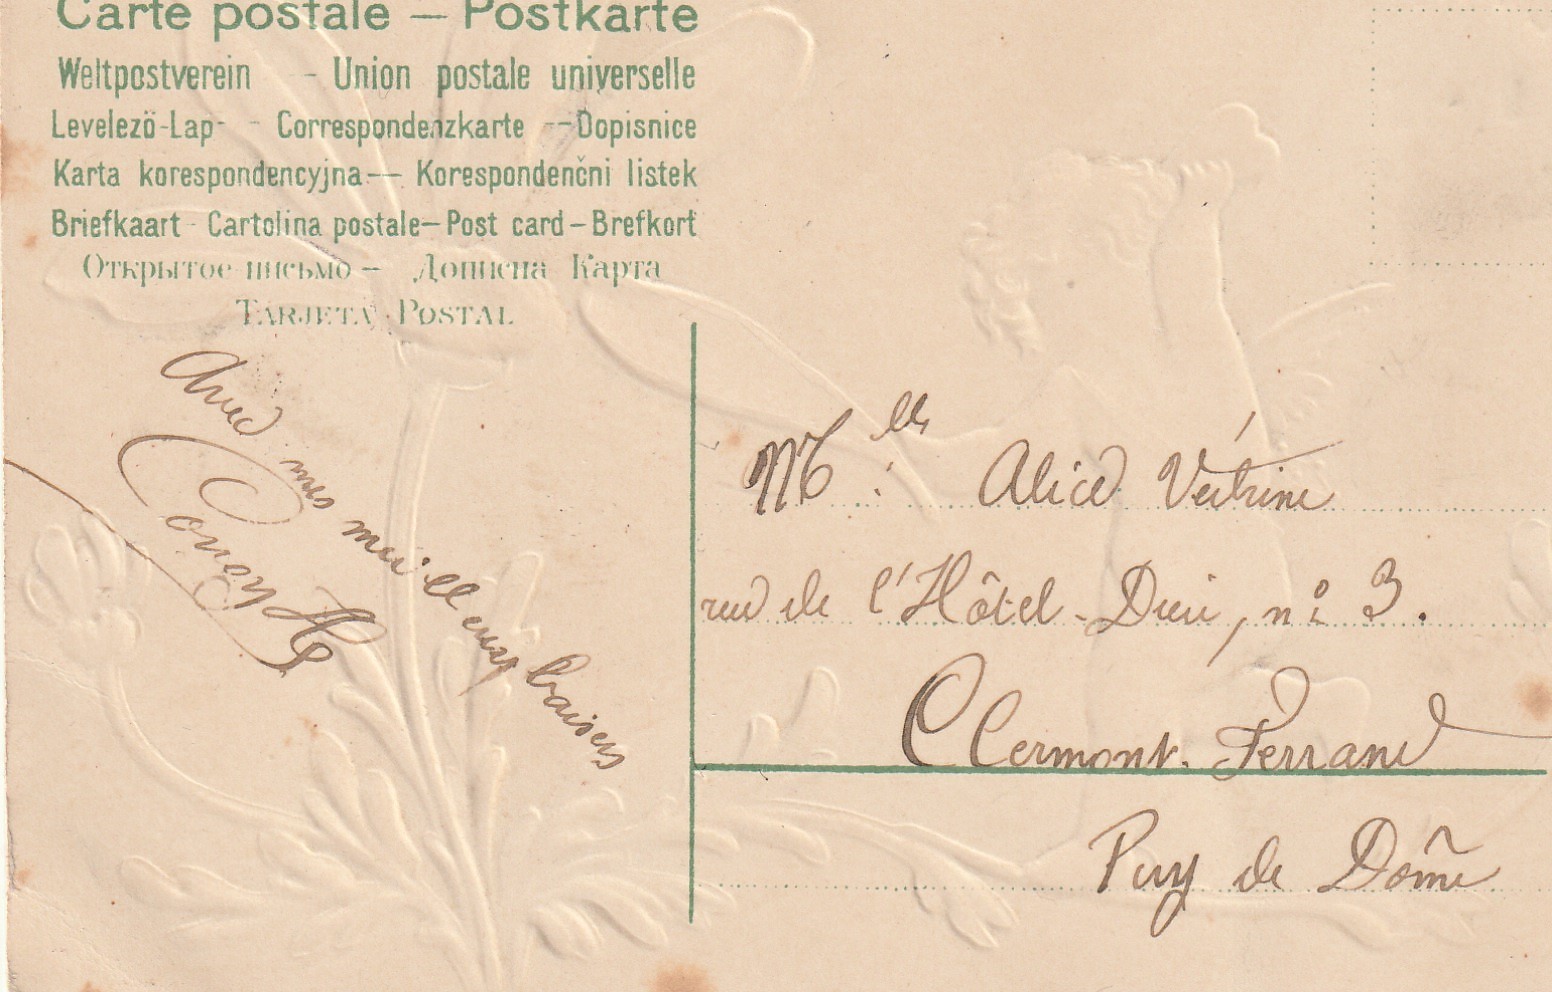 Carte postale — Postkarte
Weltpostverein - Union postale universelle
Levelezö-Lap - Correspondenzkarte - Dopisnice
Karta korespondencyjna — Korespondenčni listek
Briefkaart - Cartolina postale — Post card — Brefkort
Открытое письмо — Дописна Карта
TARJETA POSTAL
Avec mes meilleurs baisers
Mlle : Alice Vertrine
rue de l'Hôtel-Dieu, n° 3.
Clermont-Ferrand
Puy de Dôme